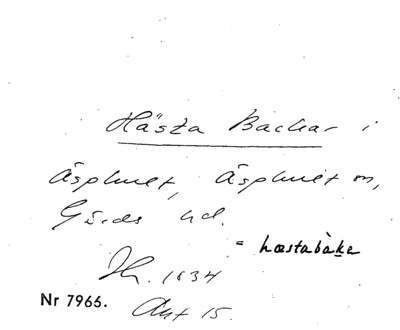 Hästa Backar i
Äsphult, Äsphult sn,
Gärds hd.
= hæstabàka
Jh. 1634
Nr 7965. Avt 15.